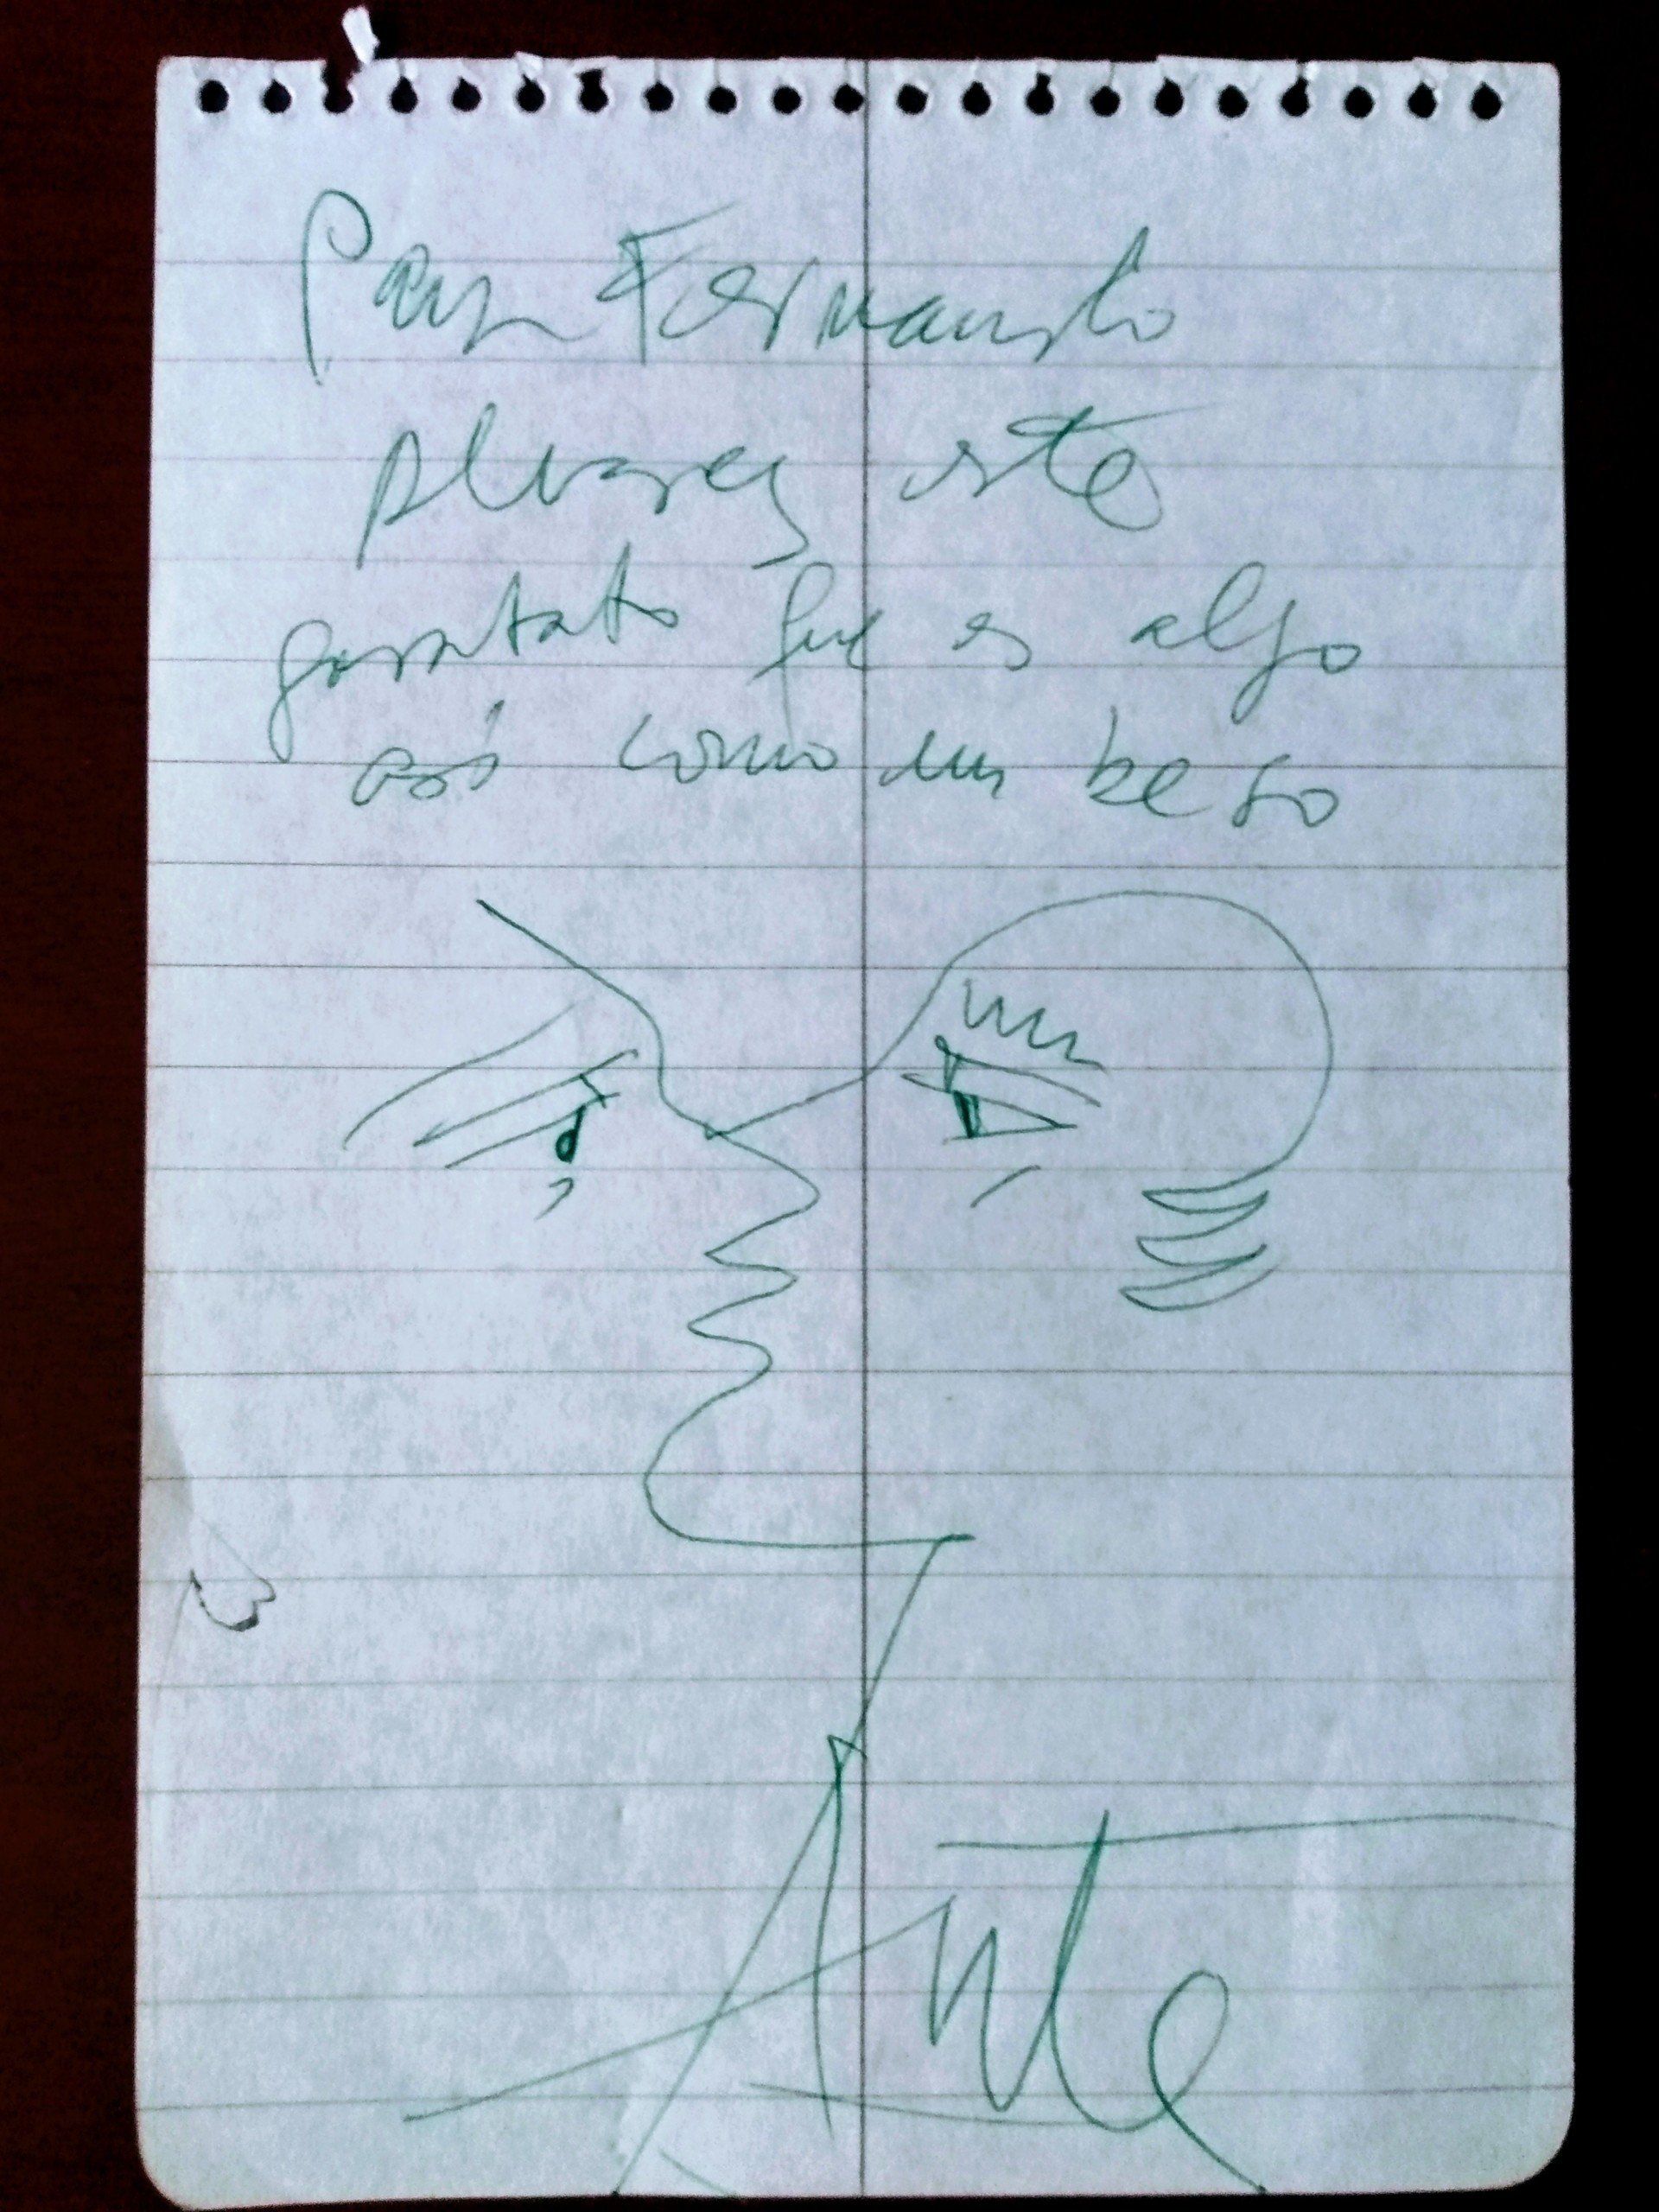 Para Fernando
Alvarez este
garatato que es algo
así como un beso
Ante